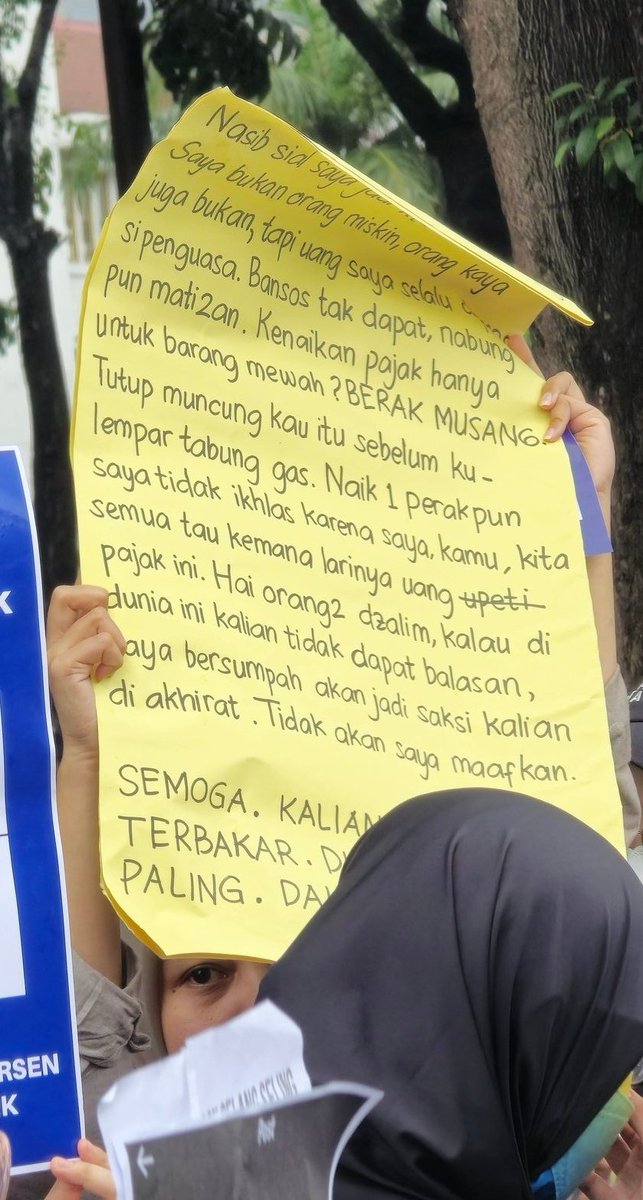 Nasib sial saya
Saya bukan orang miskin, orang kaya
juga bukan, tapi uang saya selalu
si penguasa. Bansos tak dapat, nabung
pun mati2an. Kenaikan pajak hanya
untuk barang mewah? BERAK MUSANG
Tutup muncung kau itu sebelum ku-
lempar tabung gas. Naik 1 perak pun
saya tidak ikhlas karena saya, kamu, kita
semua tau kemana larinya uang upeti
pajak ini. Hai orang2 dzalim, kalau di
dunia ini kalian tidak dapat balasan,
saya bersumpah akan jadi saksi kalian
di akhirat. Tidak akan saya maafkan.
SEMOGA. KALIAN
TERBAKAR.
PALING.
RSEN
K